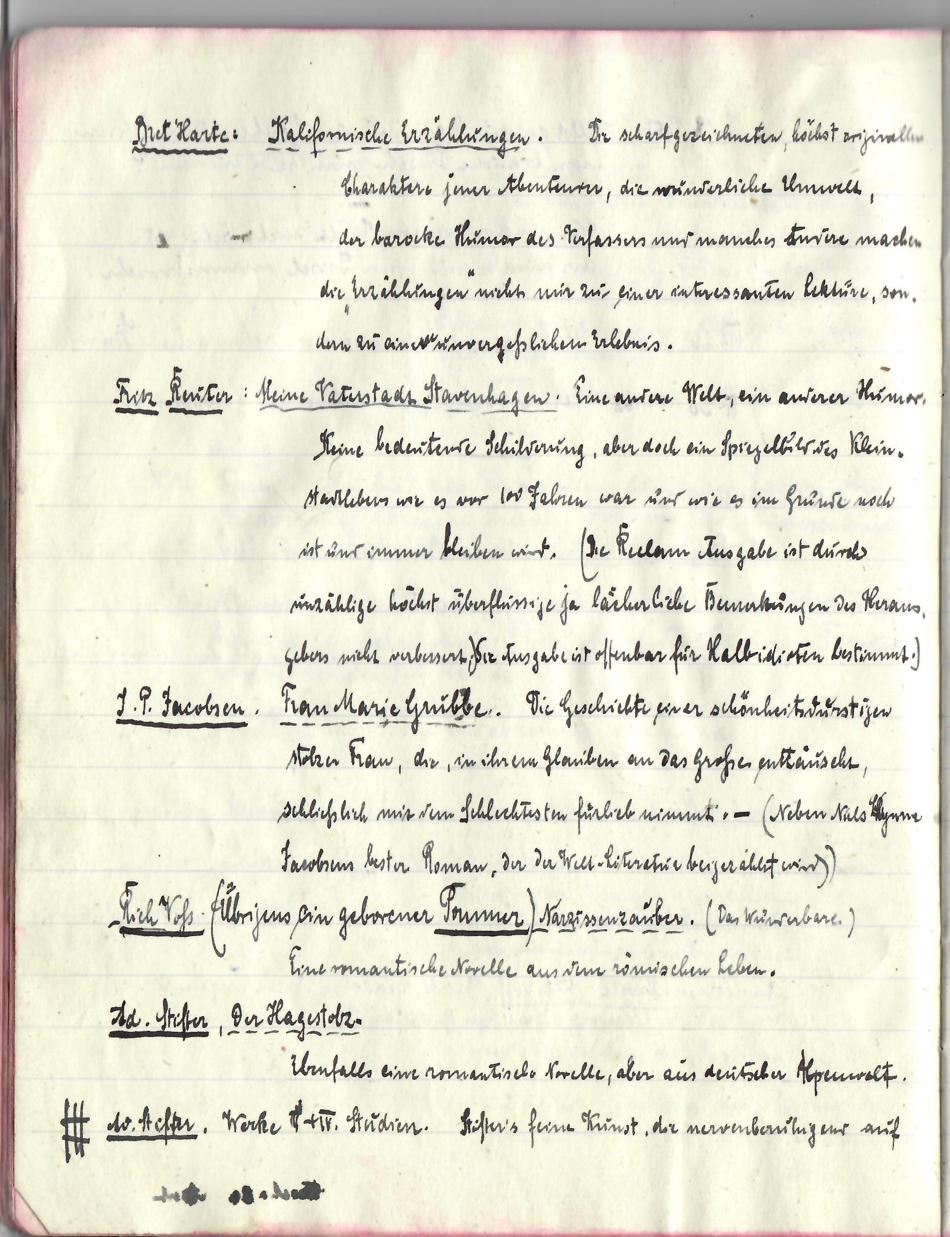 Bret Harte: Kalifornische Erzählungen. Die scharfgezeichneten, höchst originellen
Charaktere jener Abenteurer, die wunderliche Umwelt,
der barocke Humor des Verfassers und manches Andere machen
die „Erzählungen" nicht nur zu einer interessanten Lektüre, son-
dern zu einem unvergeßlichen Erlebnis.
Fritz Reuter: Meine Vaterstadt Stavenhagen. Eine andere Welt, ein anderer Humor.
Keine bedeutende Schilderung, aber doch ein Spiegelbild des Klein-
stadtlebens wie es vor 100 Jahren war und wie es im Grunde noch
ist und immer bleiben wird. (Die Reclam Ausgabe ist durch
unzählige höchst überflüssige ja lächerliche Bemerkungen des Heraus-
gebers nicht verbessert.) Die Ausgabe ist offenbar für Halbidioten bestimmt.)
J. P. Jacobsen. Frau Marie Grubbe. Die Geschichte einer schönheitsdurstigen
stolzen Frau, die, in ihrem Glauben an das Große enttäuscht,
schließlich mit dem Schlechtesten fürlieb nimmt. — (Neben Niels Lyhne
Jacobsens bester Roman, der der Welt-Literatur beigezählt wird))
Rich Voß (Übrigens ein geborener Pommer) Narzissenzauber. (Das Wunderbare.)
Eine romantische Novelle aus dem römischen Leben.
Ad. Stifter, Der Hagestolz.
Ebenfalls eine romantische Novelle, aber aus deutscher Alpenwelt.
Ad. Stifter. Werke + IV. Studien. Stifter's feine Kunst, die nervenberuhigend auf